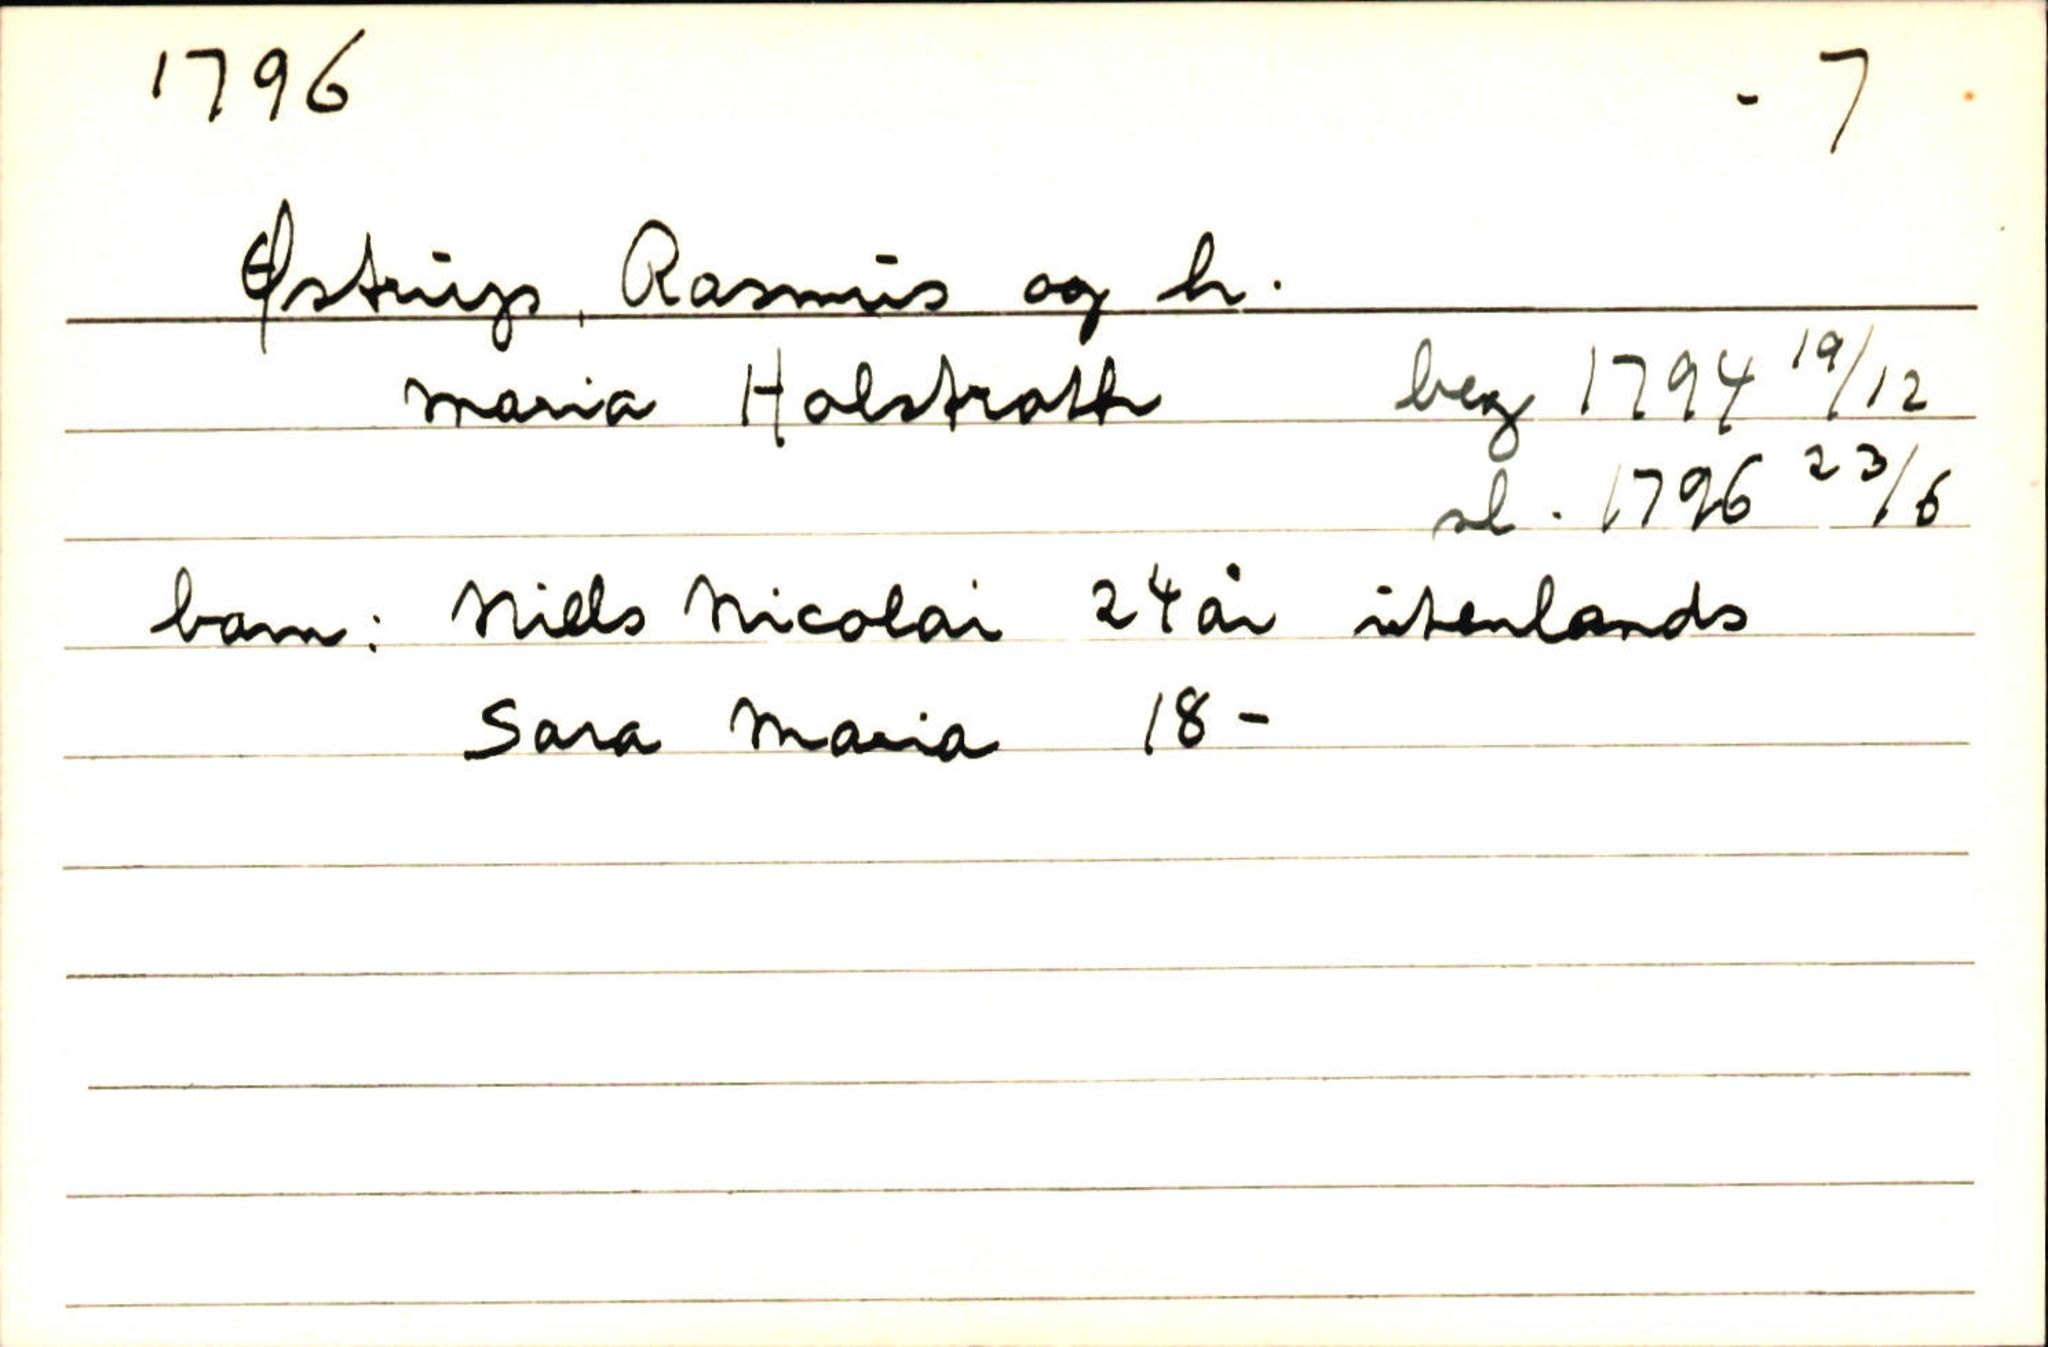 1796 - 7
Østrup, Rasmus og h.
Maria Holstrath beg 1794 19/12
sl. 1796 23/6
barn: Niels Nicolai 24 år utenlands
Sara Maria 18 -